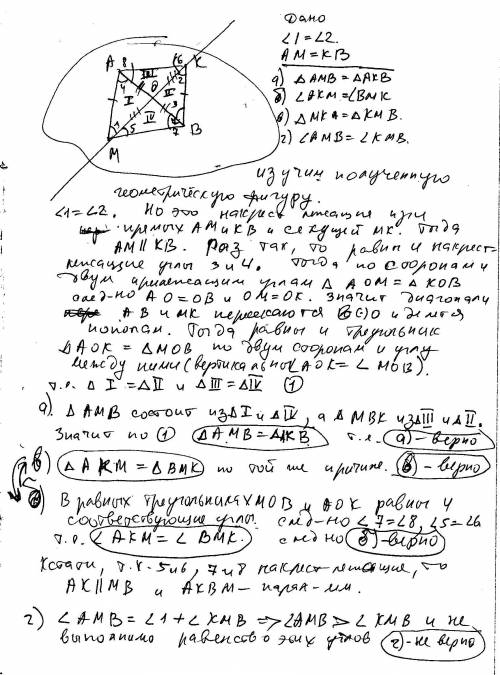 Дано
∠1=∠2.
AM=KB
а) △AMB=△AKB
б) ∠AKM=∠BMK
в) △MKA=△KMB.
г) ∠AMB=∠KMB.
A 8 III 6 K
4 O 2
I II
1 IV 3
5 7 B
M
изучим полученную
геометрическую фигуру.
∠1=∠2. Но это накрест лежащие при
прямых AM и KB и секущей MK. Тогда
AM∥KB. Раз так, то равны и накрест-
лежащие углы 3 и 4. Тогда по стороне и
двум прилежащим углам △AOM=△KOB
след-но AO=OB и OM=OK. Значит диагонали
AB и MK пересекаются в (·)O и делятся
пополам. Тогда равны и треугольник
△AOK=△MOB по двум сторонам и углу
между ними (вертикальные ∠AOK=∠MOB).
т.е. △I=△II и △III=△IV (1)
а). △AMB состоит из △I и △IV, а △MBK из △III и △II.
Значит по (1) △AMB=△AKB т.е. а)-верно
в) △AKM=△BMK по той же причине. в)-верно
б) В равных треугольниках MOB и AOK равны и
соответствующие углы. след-но ∠7=∠8, ∠5=∠6
т.е. ∠AKM=∠BMK. след-но б)-верно
Кстати, т.к. 5 и 6, 7 и 8 накрест-лежащие, то
AK∥MB и AKBM-парал-мм.
г) ∠AMB=∠1+∠KMB => ∠AMB>∠KMB и не
выполнимо равенство этих углов г)-не верно